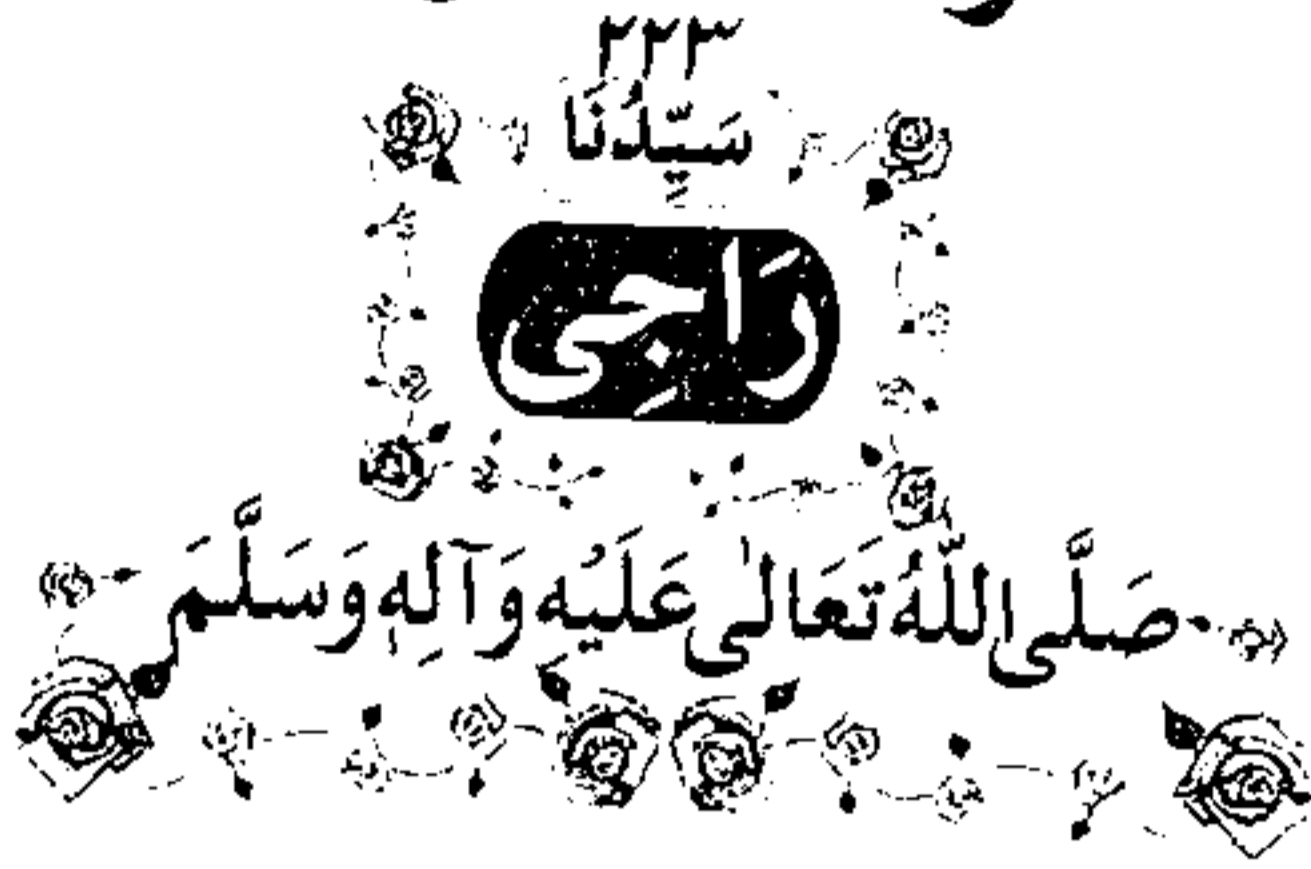 ٢٢٣
سَيِّدُنَا
رَاجِى
صَلَّى اللّٰهُ تَعَالٰى عَلَيْهِ وَآلِهٖ وَسَلَّمَ